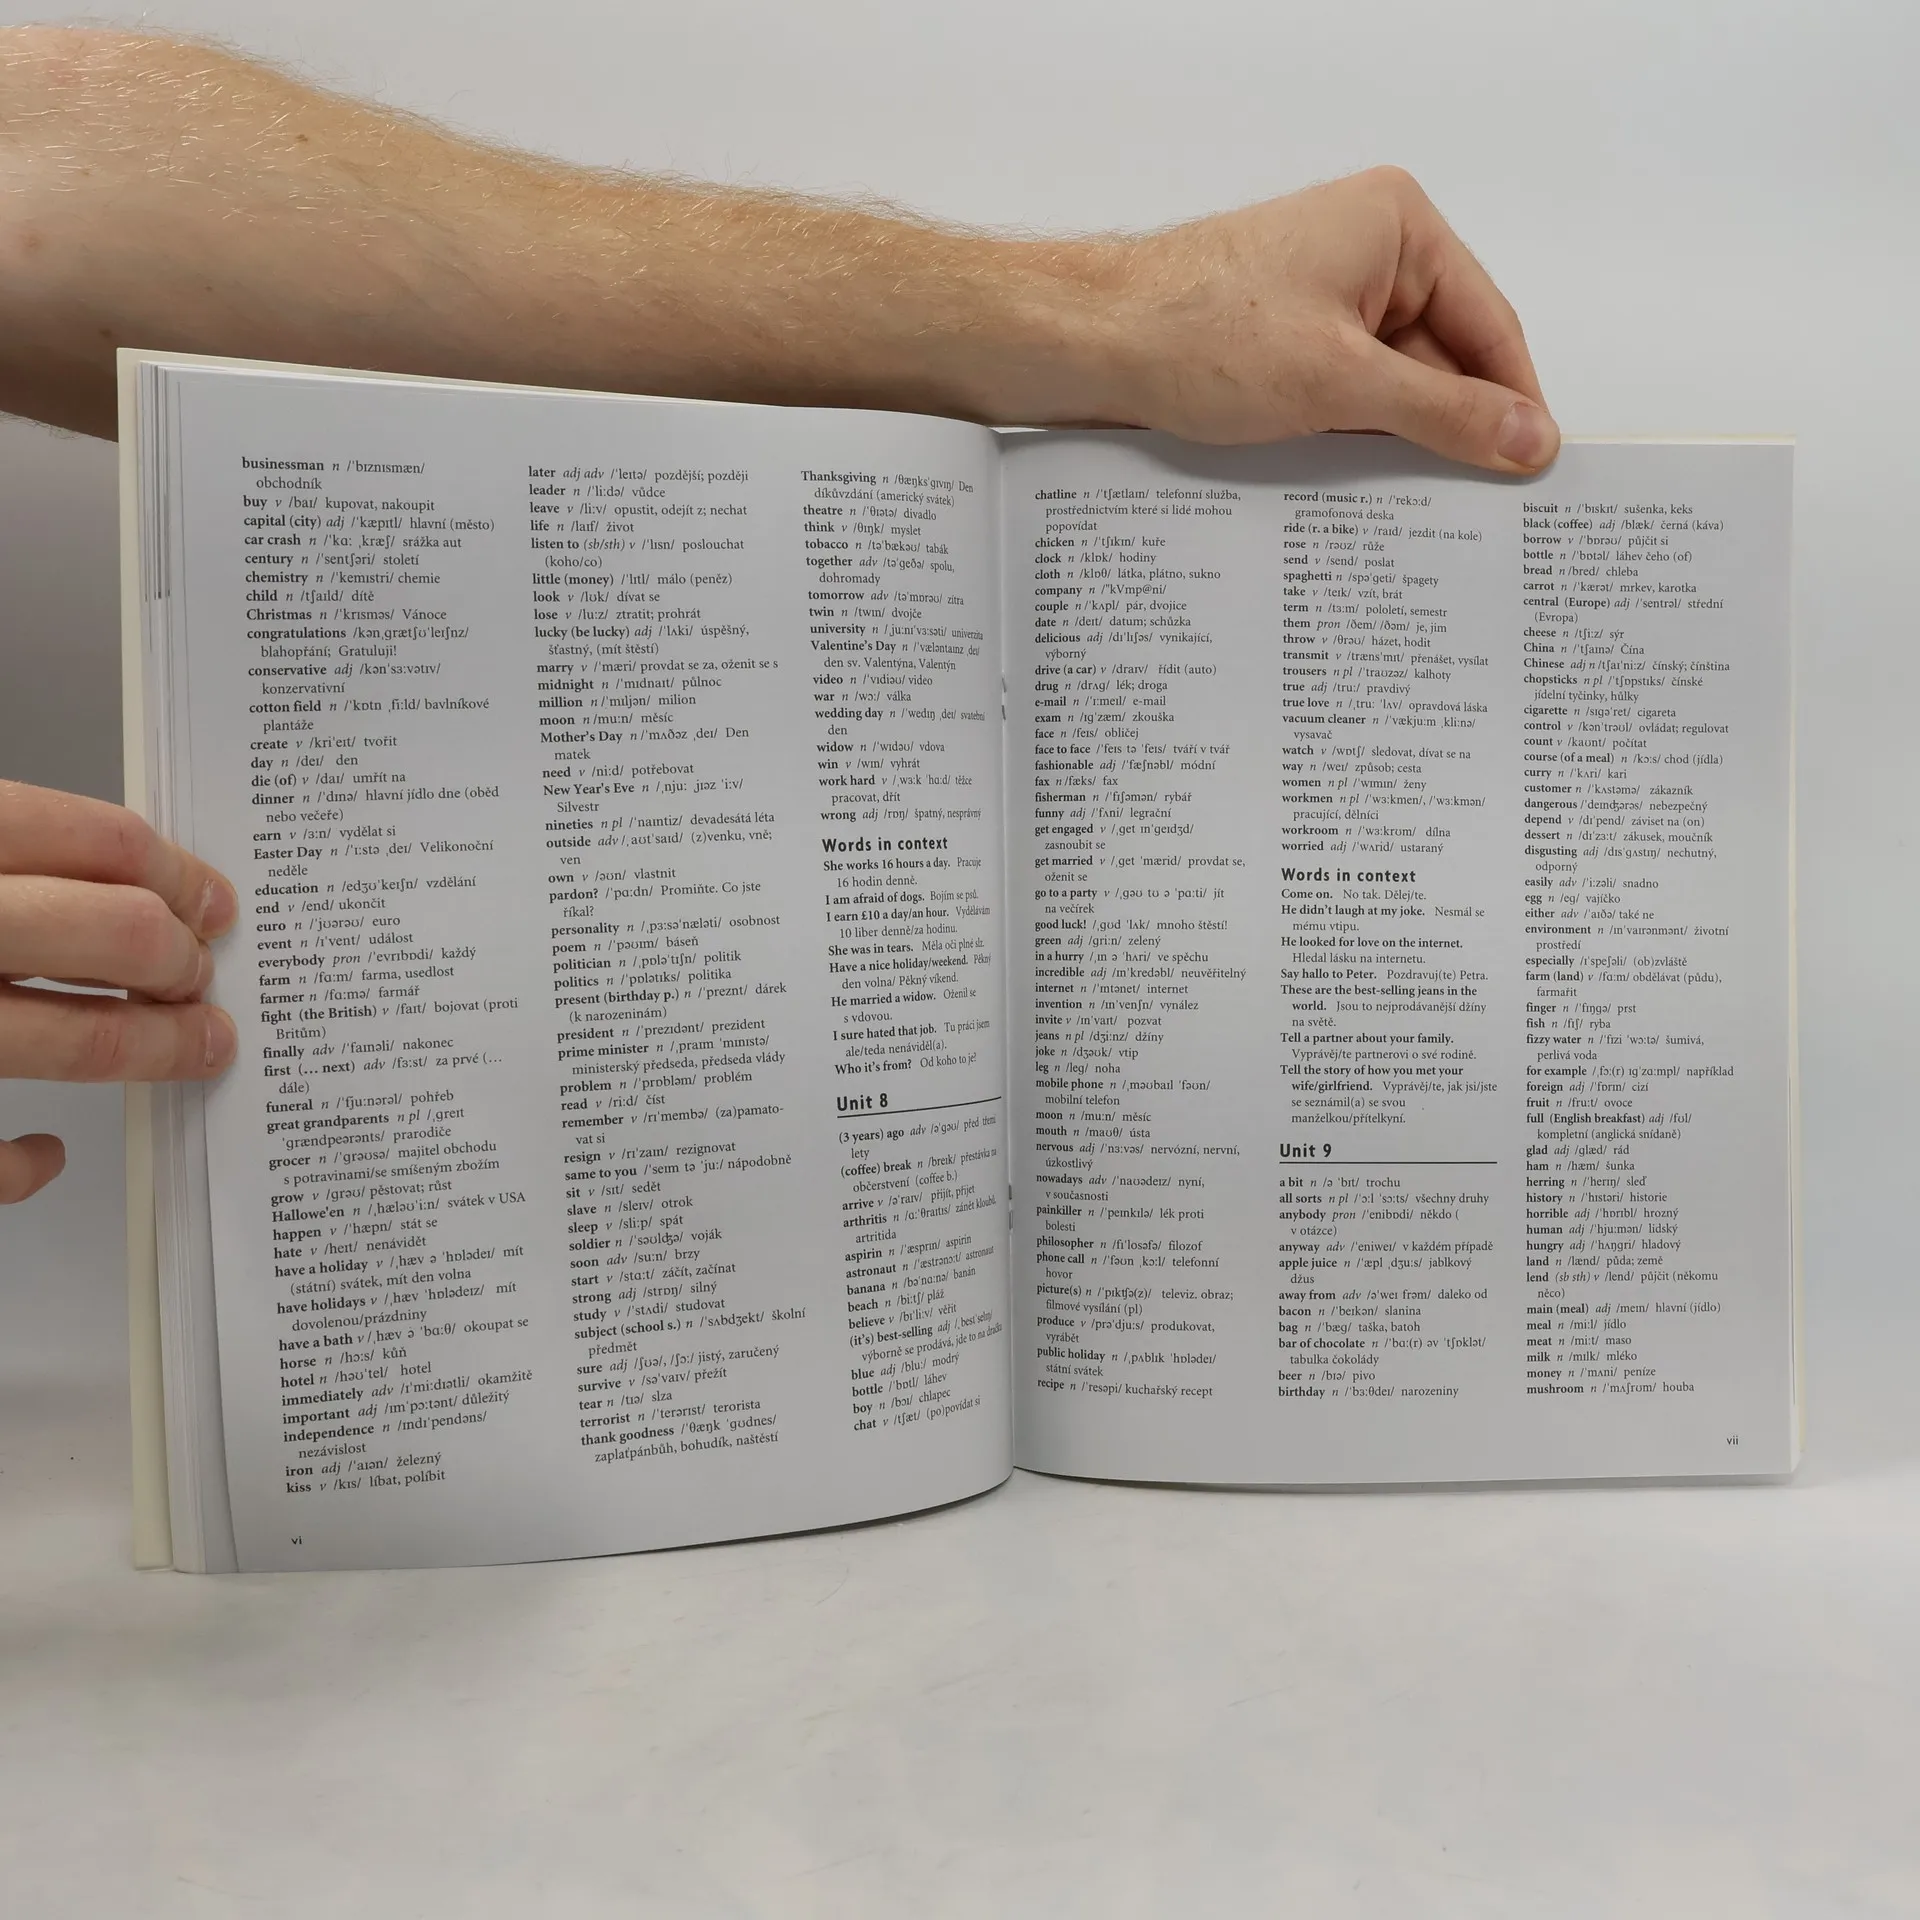 businessman n /ˈbɪznɪsmæn/
obchodník
buy v /baɪ/ kupovat, nakoupit
capital (city) adj /ˈkæpɪtl/ hlavní (město)
car crash n /ˈkɑː ˌkræʃ/ srážka aut
century n /ˈsentʃəri/ století
chemistry n /ˈkemɪstri/ chemie
child n /tʃaɪld/ dítě
Christmas n /ˈkrɪsməs/ Vánoce
congratulations /kənˌgrætʃʊˈleɪʃnz/
blahopřání; Gratuluji!
conservative adj /kənˈsɜːvətɪv/
konzervativní
cotton field n /ˈkɒtn ˌfiːld/ bavlníkové
plantáže
create v /kriˈeɪt/ tvořit
day n /deɪ/ den
die (of) v /daɪ/ umřít na
dinner n /ˈdɪnə/ hlavní jídlo dne (oběd
nebo večeře)
earn v /ɜːn/ vydělat si
Easter Day n /ˈiːstə ˌdeɪ/ Velikonoční
neděle
education n /edʒʊˈkeɪʃn/ vzdělání
end v /end/ ukončit
euro n /ˈjʊərəʊ/ euro
event n /ɪˈvent/ událost
everybody pron /ˈevrɪbɒdi/ každý
farm n /fɑːm/ farma, usedlost
farmer n /fɑːmə/ farmář
fight (the British) v /faɪt/ bojovat (proti
Britům)
finally adv /ˈfaɪnəli/ nakonec
first (… next) adv /fɜːst/ za prvé (…
dále)
funeral n /ˈfjuːnərəl/ pohřeb
great grandparents n pl /ˌgreɪt
ˈgrændpeərənts/ prarodiče
grocer n /ˈgrəʊsə/ majitel obchodu
s potravinami/se smíšeným zbožím
grow v /grəʊ/ pěstovat; růst
Hallowe'en n /ˌhæləʊˈiːn/ svátek v USA
happen v /ˈhæpn/ stát se
hate v /heɪt/ nenávidět
have a holiday v /ˌhæv ə ˈhɒlədeɪ/ mít
(státní) svátek, mít den volna
have holidays v /ˌhæv ˈhɒlədeɪz/ mít
dovolenou/prázdniny
have a bath v /ˌhæv ə ˈbɑːθ/ okoupat se
horse n /hɔːs/ kůň
hotel n /həʊˈtel/ hotel
immediately adv /ɪˈmiːdɪətli/ okamžitě
important adj /ɪmˈpɔːtənt/ důležitý
independence n /ɪndɪˈpendəns/
nezávislost
iron adj /ˈaɪən/ železný
kiss v /kɪs/ líbat, políbit
vi
later adj adv /ˈleɪtə/ pozdější; později
leader n /ˈliːdə/ vůdce
leave v /liːv/ opustit, odejít z; nechat
life n /laɪf/ život
listen to (sb/sth) v /ˈlɪsn/ poslouchat
(koho/co)
little (money) /ˈlɪtl/ málo (peněz)
look v /lʊk/ dívat se
lose v /luːz/ ztratit; prohrát
lucky (be lucky) adj /ˈlʌki/ úspěšný,
šťastný, (mít štěstí)
marry v /ˈmæri/ provdat se za, oženit se s
midnight n /ˈmɪdnaɪt/ půlnoc
million n /ˈmɪljən/ milion
moon n /muːn/ měsíc
Mother's Day n /ˈmʌðəz ˌdeɪ/ Den
matek
need v /niːd/ potřebovat
New Year's Eve n /ˌnjuː ˌjɪəz ˈiːv/
Silvestr
nineties n pl /ˈnaɪntiz/ devadesátá léta
outside adv /ˌaʊtˈsaɪd/ (z)venku, vně;
ven
own v /əʊn/ vlastnit
pardon? /ˈpɑːdn/ Promiňte. Co jste
říkal?
personality n /ˌpɜːsəˈnæləti/ osobnost
poem n /ˈpəʊɪm/ báseň
politician n /ˌpɒləˈtɪʃn/ politik
politics n /ˈpɒlətɪks/ politika
present (birthday p.) n /ˈpreznt/ dárek
(k narozeninám)
president n /ˈprezɪdənt/ prezident
prime minister n /ˌpraɪm ˈmɪnɪstə/
ministerský předseda, předseda vlády
problem n /ˈprɒbləm/ problém
read v /riːd/ číst
remember v /rɪˈmembə/ (za)pamato-
vat si
resign v /rɪˈzaɪn/ rezignovat
same to you /ˈseɪm tə ˈjuː/ nápodobně
sit v /sɪt/ sedět
slave n /sleɪv/ otrok
sleep v /sliːp/ spát
soldier n /ˈsəʊldʒə/ voják
soon adv /suːn/ brzy
start v /stɑːt/ záčít, začínat
strong adj /strɒŋ/ silný
study v /ˈstʌdi/ studovat
subject (school s.) n /ˈsʌbdʒekt/ školní
předmět
sure adj /ʃʊə/, /ʃɔː/ jistý, zaručený
survive v /səˈvaɪv/ přežít
tear n /tɪə/ slza
terrorist n /ˈterərɪst/ terorista
thank goodness /ˈθæŋk ˈgʊdnes/
zaplaťpánbůh, bohudík, naštěstí
Thanksgiving n /θæŋksˈgɪvɪŋ/ Den
díkůvzdání (americký svátek)
theatre n /ˈθɪətə/ divadlo
think v /θɪŋk/ myslet
tobacco n /təˈbækəʊ/ tabák
together adv /təˈgeðə/ spolu,
dohromady
tomorrow adv /təˈmɒrəʊ/ zítra
twin n /twɪn/ dvojče
university n /ˌjuːnɪˈvɜːsəti/ univerzita
Valentine's Day n /ˈvæləntaɪnz ˌdeɪ/
den sv. Valentýna, Valentýn
video n /ˈvɪdiəʊ/ video
war n /wɔː/ válka
wedding day n /ˈwedɪŋ ˌdeɪ/ svatební
den
widow n /ˈwɪdəʊ/ vdova
win v /wɪn/ vyhrát
work hard v /ˌwɜːk ˈhɑːd/ těžce
pracovat, dřít
wrong adj /rɒŋ/ špatný, nesprávný
Words in context
She works 16 hours a day. Pracuje
16 hodin denně.
I am afraid of dogs. Bojím se psů.
I earn £10 a day/an hour. Vydělávám
10 liber denně/za hodinu.
She was in tears. Měla oči plné slz.
Have a nice holiday/weekend. Pěkný
den volna/ Pěkný víkend.
He married a widow. Oženil se
s vdovou.
I sure hated that job. Tu práci jsem
ale/teda nenáviděl(a).
Who it's from? Od koho to je?
Unit 8
(3 years) ago adv /əˈgəʊ/ před třemi
lety
(coffee) break n /breɪk/ přestávka na
občerstvení (coffee b.)
arrive v /əˈraɪv/ přijít, přijet
arthritis n /ɑːˈθraɪtɪs/ zánět kloubů,
artritida
aspirin n /ˈæsprɪn/ aspirin
astronaut n /ˈæstrənɔːt/ astronaut
banana n /bəˈnɑːnə/ banán
beach n /biːtʃ/ pláž
believe v /bɪˈliːv/ věřit
(it's) best-selling adj /ˌbestˈselɪŋ/
výborně se prodává, jde to na dračku
blue adj /bluː/ modrý
bottle n /ˈbɒtl/ láhev
boy n /bɔɪ/ chlapec
chat v /tʃæt/ (po)povídat si
chatline n /ˈtʃætlaɪn/ telefonní služba,
prostřednictvím které si lidé mohou
popovídat
chicken n /ˈtʃɪkɪn/ kuře
clock n /klɒk/ hodiny
cloth n /klɒθ/ látka, plátno, sukno
company n /"kVmp@ni/
couple n /ˈkʌpl/ pár, dvojice
date n /deɪt/ datum; schůzka
delicious adj /dɪˈlɪʃəs/ vynikající,
výborný
drive (a car) v /draɪv/ řídit (auto)
drug n /drʌg/ lék; droga
e-mail n /ˈiːmeɪl/ e-mail
exam n /ɪgˈzæm/ zkouška
face n /feɪs/ obličej
face to face /ˈfeɪs tə ˈfeɪs/ tváří v tvář
fashionable adj /ˈfæʃnəbl/ módní
fax n /fæks/ fax
fisherman n /ˈfɪʃəmən/ rybář
funny adj /ˈfʌni/ legrační
get engaged v /ˌget ɪnˈgeɪdʒd/
zasnoubit se
get married v /ˌget ˈmærɪd/ provdat se,
oženit se
go to a party v /ˌgəʊ tʊ ə ˈpɑːti/ jít
na večírek
good luck! /ˌgʊd ˈlʌk/ mnoho štěstí!
green adj /griːn/ zelený
in a hurry /ˌɪn ə ˈhʌri/ ve spěchu
incredible adj /ɪnˈkredəbl/ neuvěřitelný
internet n /ˈɪntənet/ internet
invention n /ɪnˈvenʃn/ vynález
invite v /ɪnˈvaɪt/ pozvat
jeans n pl /dʒiːnz/ džíny
joke n /dʒəʊk/ vtip
leg n /leg/ noha
mobile phone n /ˌməʊbaɪl ˈfəʊn/
mobilní telefon
moon n /muːn/ měsíc
mouth n /maʊθ/ ústa
nervous adj /ˈnɜːvəs/ nervózní, nervní,
úzkostlivý
nowadays adv /ˈnaʊədeɪz/ nyní,
v současnosti
painkiller n /ˈpeɪnkɪlə/ lék proti
bolesti
philosopher n /fɪˈlɒsəfə/ filozof
phone call n /ˈfəʊn ˌkɔːl/ telefonní
hovor
picture(s) n /ˈpɪktʃə(z)/ televiz. obraz;
filmové vysílání (pl)
produce v /prəˈdjuːs/ produkovat,
vyrábět
public holiday n /ˌpʌblɪk ˈhɒlədeɪ/
státní svátek
recipe n /ˈresəpi/ kuchařský recept
record (music r.) n /ˈrekɔːd/
gramofonová deska
ride (r. a bike) v /raɪd/ jezdit (na kole)
rose n /rəʊz/ růže
send v /send/ poslat
spaghetti n /spəˈgeti/ špagety
take v /teɪk/ vzít, brát
term n /tɜːm/ pololetí, semestr
them pron /ðem/ /ðəm/ je, jim
throw v /θrəʊ/ házet, hodit
transmit v /trænsˈmɪt/ přenášet, vysílat
trousers n pl /ˈtraʊzəz/ kalhoty
true adj /truː/ pravdivý
true love n /ˌtruː ˈlʌv/ opravdová láska
vacuum cleaner n /ˈvækjuːm ˌkliːnə/
vysavač
watch v /wɒtʃ/ sledovat, dívat se na
way n /weɪ/ způsob; cesta
women n pl /ˈwɪmɪn/ ženy
workmen n pl /ˈwɜːkmen/, /ˈwɜːkmən/
pracující, dělníci
workroom n /ˈwɜːkrʊm/ dílna
worried adj /ˈwʌrid/ ustaraný
Words in context
Come on. No tak. Dělej/te.
He didn't laugh at my joke. Nesmál se
mému vtipu.
He looked for love on the internet.
Hledal lásku na internetu.
Say hallo to Peter. Pozdravuj(te) Petra.
These are the best-selling jeans in the
world. Jsou to nejprodávanější džíny
na světě.
Tell a partner about your family.
Vyprávěj/te partnerovi o své rodině.
Tell the story of how you met your
wife/girlfriend. Vyprávěj/te, jak jsi/jste
se seznámil(a) se svou
manželkou/přítelkyní.
Unit 9
a bit n /ə ˈbɪt/ trochu
all sorts n pl /ˈɔːl ˈsɔːts/ všechny druhy
anybody pron /ˈenibɒdi/ někdo (
v otázce)
anyway adv /ˈeniweɪ/ v každém případě
apple juice n /ˈæpl ˌdʒuːs/ jablkový
džus
away from adv /əˈweɪ frəm/ daleko od
bacon n /ˈbeɪkən/ slanina
bag n /ˈbæg/ taška, batoh
bar of chocolate n /ˈbɑː(r) əv ˈtʃɒklət/
tabulka čokolády
beer n /bɪə/ pivo
birthday n /ˈbɜːθdeɪ/ narozeniny
biscuit n /ˈbɪskɪt/ sušenka, keks
black (coffee) adj /blæk/ černá (káva)
borrow v /ˈbɒrəʊ/ půjčit si
bottle n /ˈbɒtəl/ láhev čeho (of)
bread n /bred/ chleba
carrot n /ˈkærət/ mrkev, karotka
central (Europe) adj /ˈsentrəl/ střední
(Evropa)
cheese n /tʃiːz/ sýr
China n /ˈtʃaɪnə/ Čína
Chinese adj n /tʃaɪˈniːz/ čínský; čínština
chopsticks n pl /ˈtʃɒpstɪks/ čínské
jídelní tyčinky, hůlky
cigarette n /sɪgəˈret/ cigareta
control v /kənˈtrəʊl/ ovládat; regulovat
count v /kaʊnt/ počítat
course (of a meal) n /kɔːs/ chod (jídla)
curry n /ˈkʌri/ kari
customer n /ˈkʌstəmə/ zákazník
dangerous /ˈdeɪndʒərəs/ nebezpečný
depend v /dɪˈpend/ záviset na (on)
dessert n /dɪˈzɜːt/ zákusek, moučník
disgusting adj /dɪsˈgʌstɪŋ/ nechutný,
odporný
easily adv /ˈiːzəli/ snadno
egg n /eg/ vajíčko
either adv /ˈaɪðə/ také ne
environment n /ɪnˈvaɪrənmənt/ životní
prostředí
especially /ɪˈspeʃəli/ (ob)zvláště
farm (land) v /fɑːm/ obdělávat (půdu),
farmařit
finger n /ˈfɪŋgə/ prst
fish n /fɪʃ/ ryba
fizzy water n /ˈfɪzi ˈwɔːtə/ šumivá,
perlivá voda
for example /ˌfɔː(r) ɪgˈzɑːmpl/ například
foreign adj /ˈfɒrɪn/ cizí
fruit n /fruːt/ ovoce
full (English breakfast) adj /fʊl/
kompletní (anglická snídaně)
glad adj /glæd/ rád
ham n /hæm/ šunka
herring n /ˈherɪŋ/ sleď
history n /ˈhɪstəri/ historie
horrible adj /ˈhɒrɪbl/ hrozný
human adj /ˈhjuːmən/ lidský
hungry adj /ˈhʌŋgri/ hladový
land n /lænd/ půda; země
lend (sb sth) v /lend/ půjčit (někomu
něco)
main (meal) adj /meɪn/ hlavní (jídlo)
meal n /miːl/ jídlo
meat n /miːt/ maso
milk n /mɪlk/ mléko
money n /ˈmʌni/ peníze
mushroom n /ˈmʌʃrʊm/ houba
vii